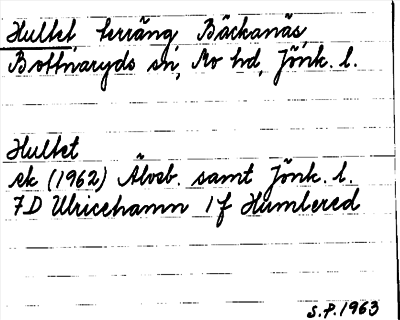 Hultet terräng Bäckanäs,
Bottnaryds sn, Mo hd, Jönk. l.
Hultet
ek (1962) Älvsb. samt Jönk. l.
7D Ulricehamn 1f Humlered
S.P. 1963